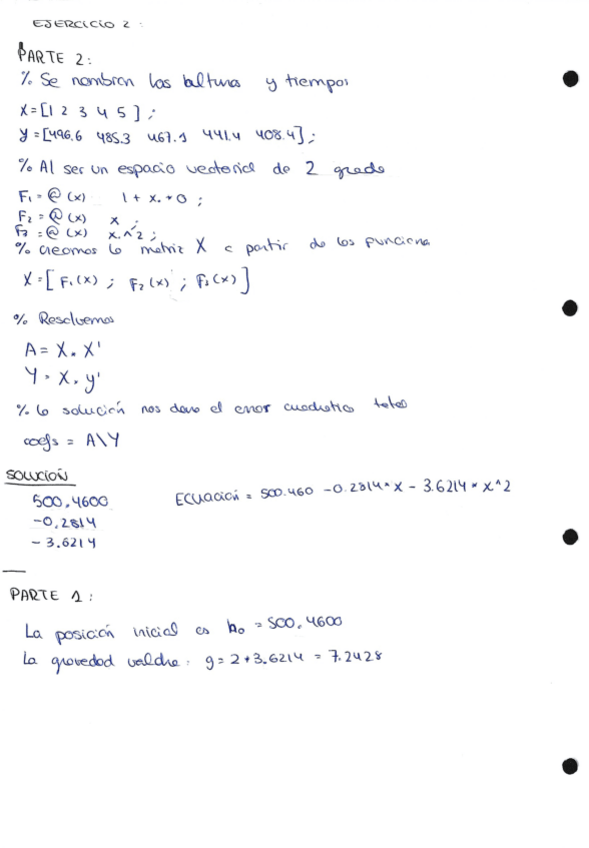 EJERCICIO 2 :
PARTE 2:
% Se nombran las alturas y tiempos
X=[1 2 3 4 5] ;
y=[496.6 485.3 467.1 441.4 408.4] ;
% Al ser un espacio vectorial de 2 grado
F₁ = @(x) 1 + x.*0 ;
F₂ = @(x) x ;
F₃ = @(x) x.^2 ;
% creamos la matriz X a partir de las funciones
X=[F₁(x) ; F₂(x) ; F₃(x)]
% Resolvemos
A = X * X'
Y = X * y'
% la solución nos dará el error cuadrático total
coefs = A\Y
SOLUCIÓN
500,4600 Ecuación = 500.460 -0.2814*x - 3.6214*x^2
-0,2814
-3.6214
PARTE 1 :
La posición inicial es h₀ = 500,4600
La gravedad valdrá: g = 2*3.6214 = 7.2428